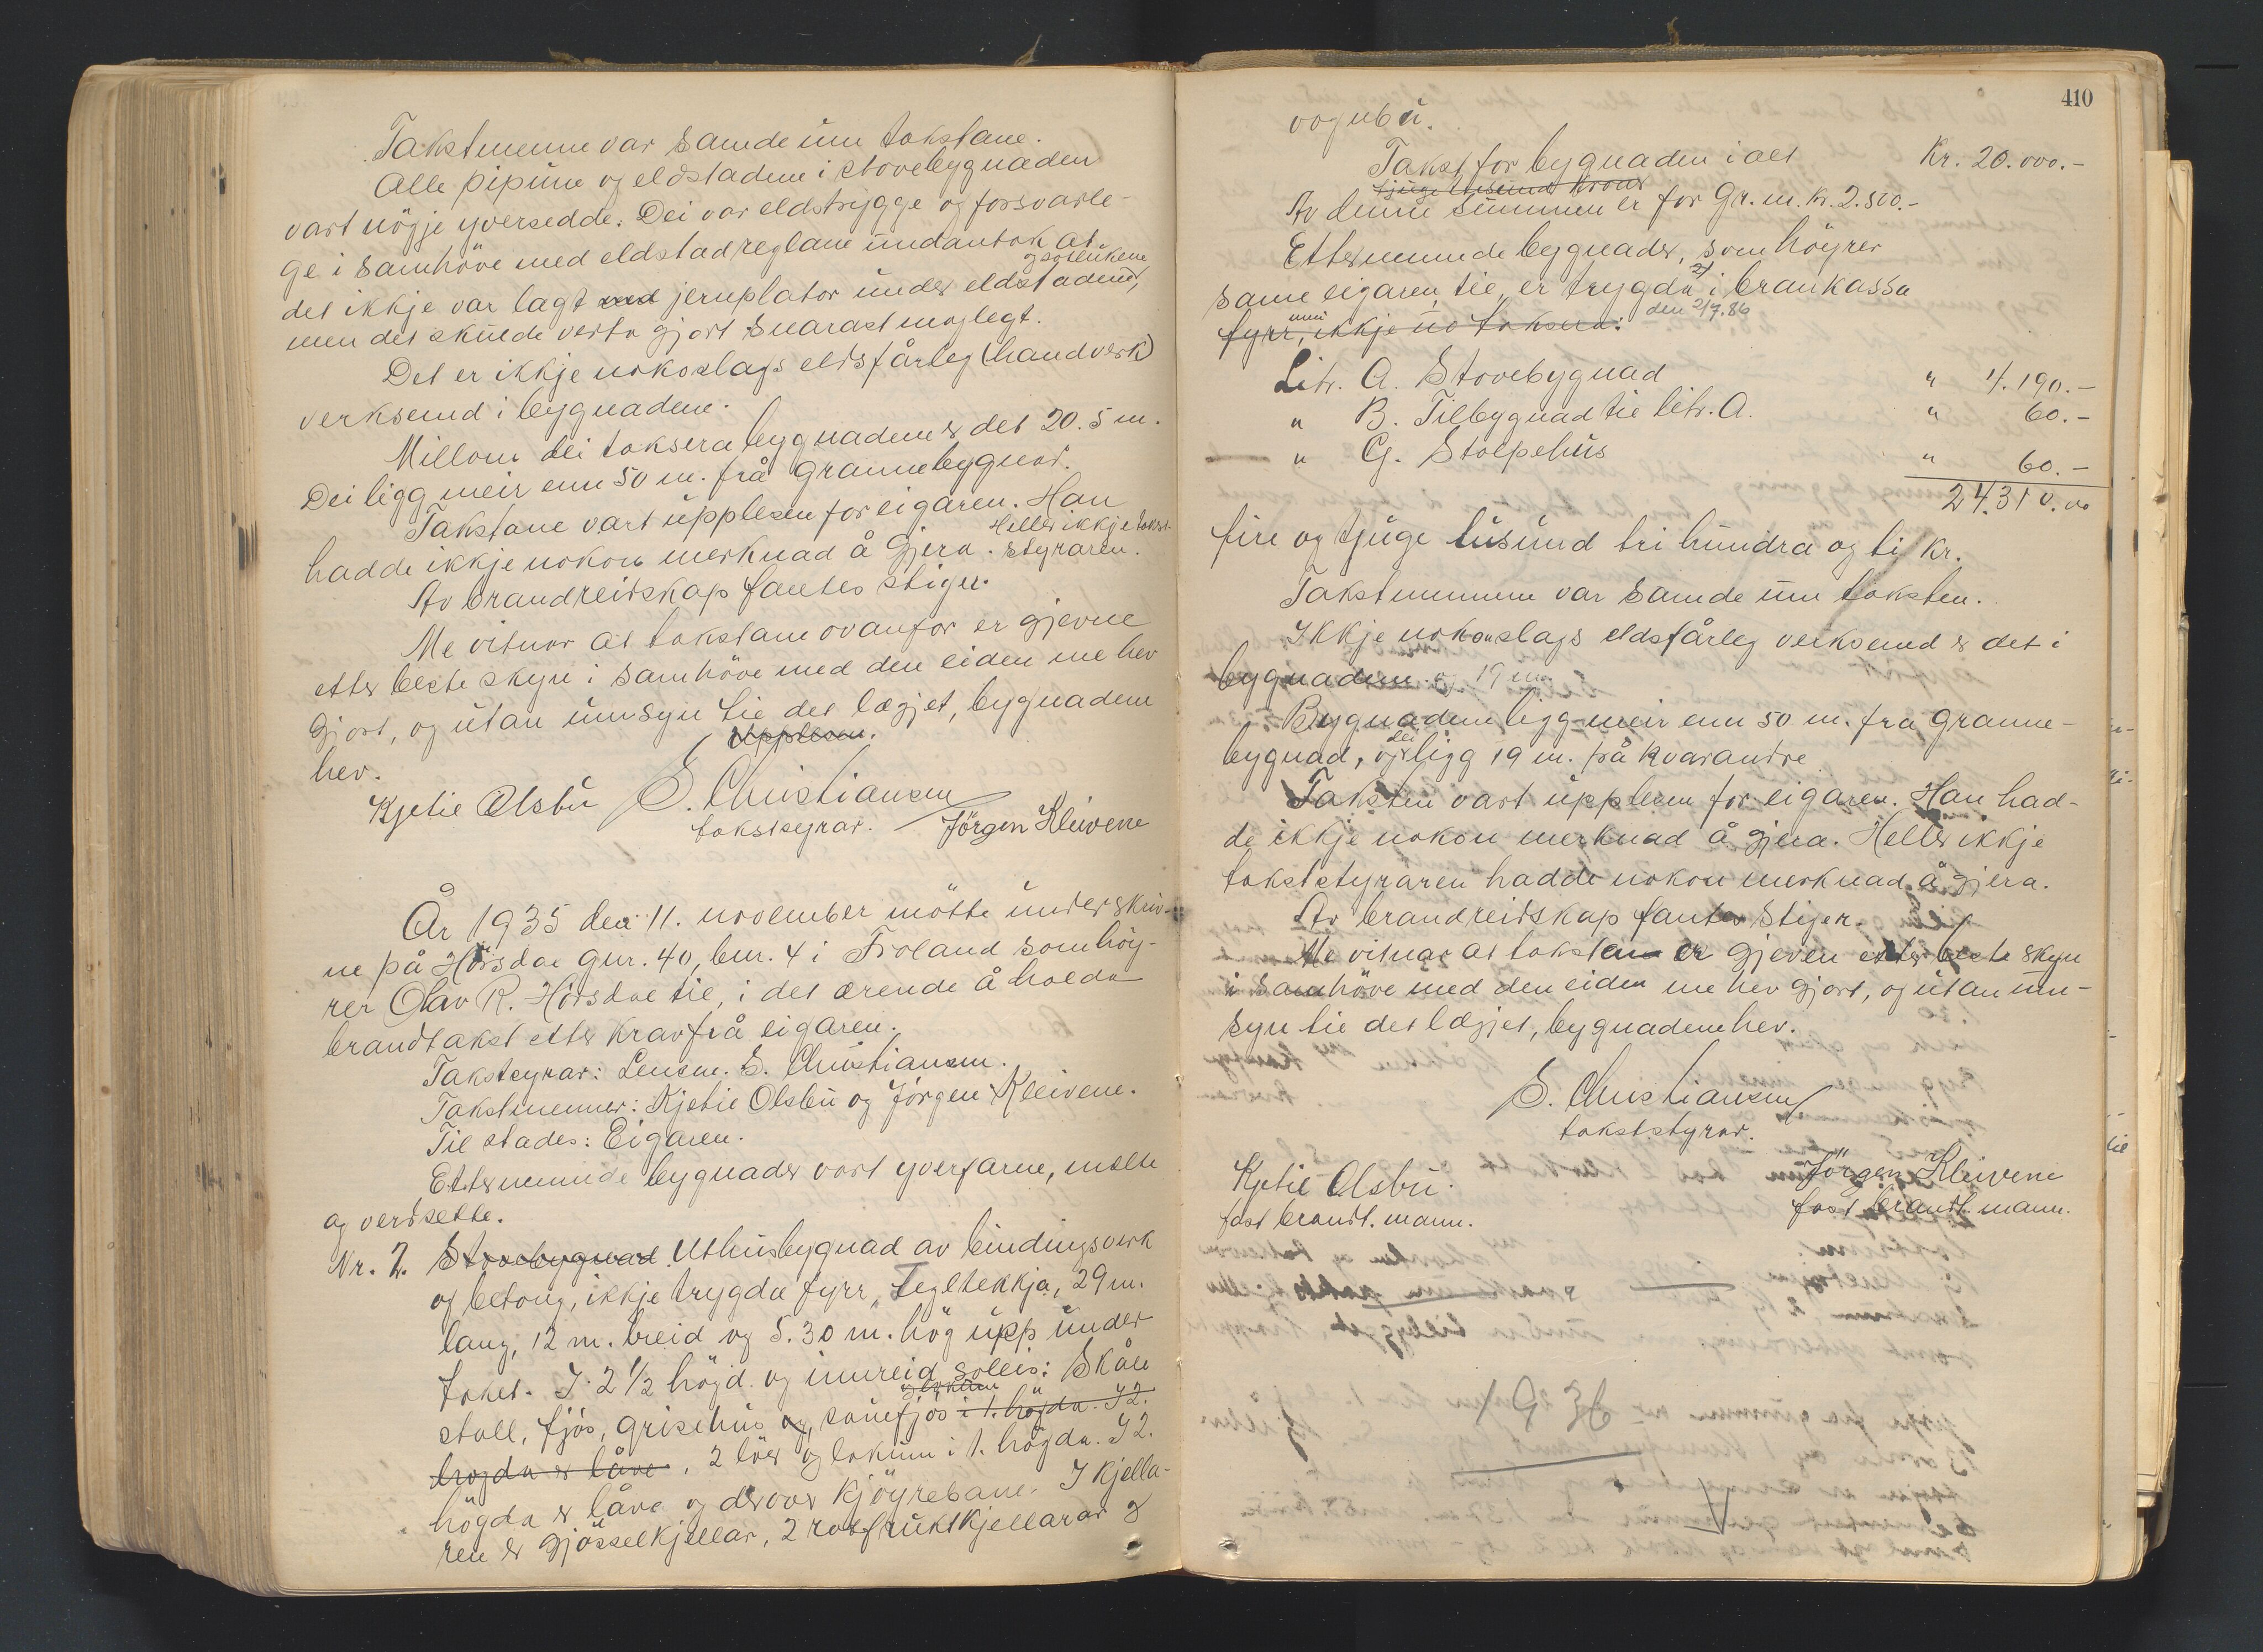 Takstmenne var samde um takstane.
Alle pipune og eldstadene i stovebygnaden
vart nögje yversedde. Dei var eldstrygge og forsvarle-
ge i samhöve med eldstadreglane undantok at
og sotlukene
det ikkje var lagt med jernplator under eldstadene,
men det skulde verta gjort snarast moglegt.
Det er ikkje nokoslags eldsfårleg (handverk)
verksemd i bygnadene.
Millom dei taksera bygnadene er det 20.5 m.
Dei ligg meir enn 50 m. frå grannebygnad.
Takstane vart upplesen for eigaren. Han
Heller ikkje takst-
hadde ikkje nokon merknad å gjera. styraren.
Av brandreidskap fantes stiger.
Me vitnar at takstane ovanfor er gjevne
etter beste skyn i samhöve med den eiden me hev
gjort, og utan umsyn til det lægjet, bygnadene
Upplesen.
hev.
Kjetil Olsbu S. Christiansen
takstyrar. Jörgen Kleivene
År 1935 den 11. november mötte underskriv-
ne på Hörsdal gnr. 40, bnr. 4 i Froland som höy-
rer Olav R. Hörsdal til, i det ærende å halda
brandtakst etter krav frå eigaren.
Takstyrar: Lensm. S. Christiansen.
Takstmenner: Kjetil Olsbu og Jörgen Kleivene.
Til stades: Eigaren.
Etternemnde bygnader vart yverfarne, mælte
og verdsette.
Nr. 2. Stovebygnad. Uthusbygnad av bindingsverk
og betong, ikkje trygda fyrr, tegltekkja, 29 m.
lang, 12 m. breid og 5.30 m. hög upp under
taket. I 2 1/2 högd og innreid soleis: Skåle
og lokum
stall, fjös, grisehus og, sauefjös i 1. högda. I 2.
högda er låve, 2 löer og lokum i 1. högda. I 2.
högda er låve og derover kjöyrebane. I kjella-
ren er gjösselkjellar, 2 rotfruktkjellarar og
410
vognbu.
Takst for bygnaden i alt Kr. 20.000.-
tjuge tusund kroner
Av denne summen er for Gr. m. kr. 2.500.-
Etternemnde bygnader, som höyrer
same eigaren til, er trygda i brankassa
den 2/7.86
fyrr, ikkje no taksera:
Litr. A. Stovebygnad " 4.190.-
" B. Tilbygnad til litr. A. " 60.-
" G. Stolpehus " 60.-
24.310.00
fire og tjuge tusund tri hundra og ti kr.
Takstmennene var samde um taksten.
Ikkje nokonslags eldsfårleg verksemd er det i
bygnadene. og 19 m.
Bygnadene ligg meir enn 50 m. fra granne-
dei
bygnad, og ligg 19 m. frå kvarandre
Taksten vart upplesen for eigaren. Han had-
de ikkje nokon merknad å gjera. Heller ikkje
takststyraren hadde nokon merknad å gjera.
Av brandreidskap fantes stiger.
Me vitnar at taksten er gjeven etter beste skyn
i samhöve med den eiden me hev gjort, og utan um-
syn til det lægjet, bygnadene hev.
S. Christiansen
takststyrar.
Kjetil Olsbu. Jörgen Kleivene
fast brandt. mann. fast brandt. mann.